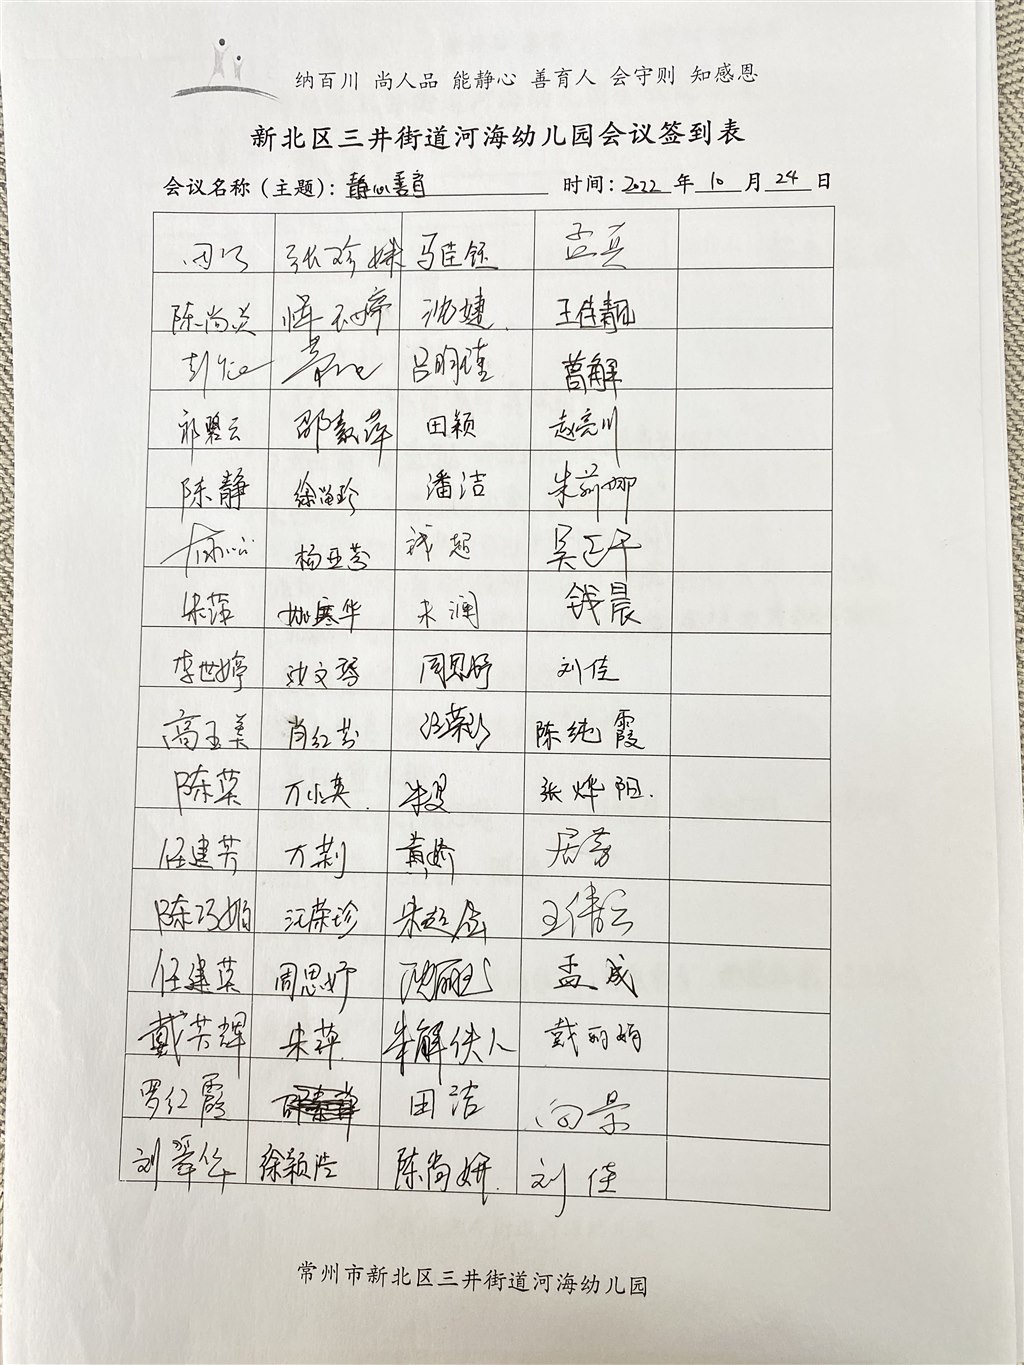 纳百川 尚人品 能静心 善育人 会守则 知感恩
新北区三井街道河海幼儿园会议签到表
会议名称（主题）：静心善育 时间：2022 年 10 月 24 日
张珍妹 马佳钰 孟兵
陈尚炎 恽永婷 沈婕 王佳靓
彭 吕明瑾 葛解
祁碧云 邵敖萍 田颖 赵亮川
陈静 徐留珍 潘洁 朱莉娜
杨亚芬 钱超 吴正午
朱萍 姚寒华 朱澜 钱晨
李世婷 沈文琴 周思妤 刘佳
高玉美 肖红芳 汪荣珍 陈纯霞
陈英 万小英 张烨阳
任建芳 万莉 黄娇 居芳
陈巧娟 汪荣珍 朱超 王倩云
任建英 周思妤 沈丽 孟成
戴芳辉 朱萍 朱解伕人 戴丽娟
罗红霞 田洁 向景
刘翠华 徐颖浩 陈尚妍 刘佳
常州市新北区三井街道河海幼儿园